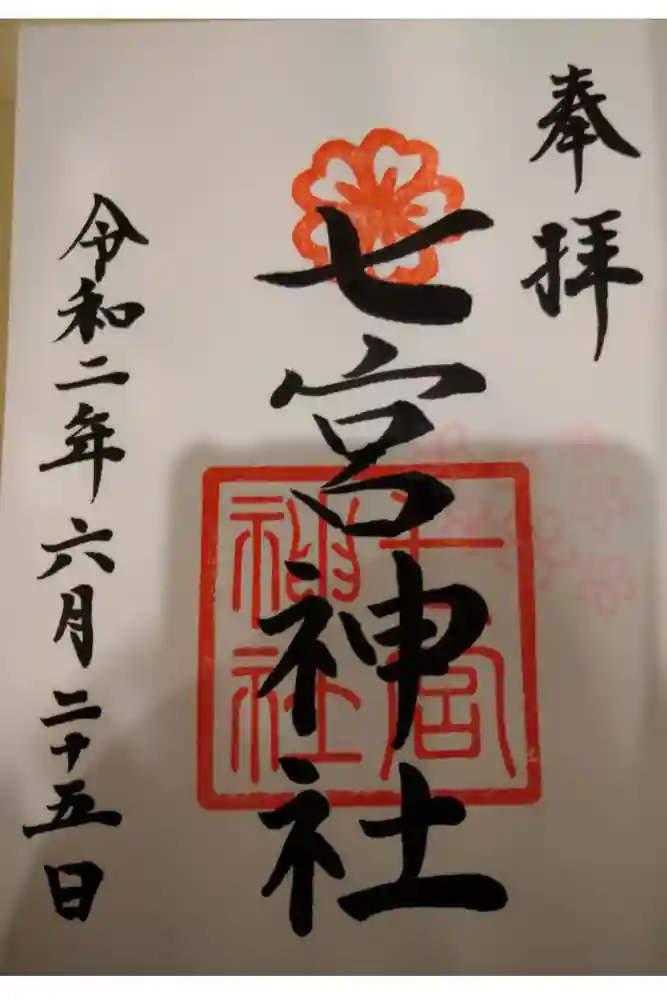 奉拝
七宮神社
七宮
神社
令和二年六月二十五日